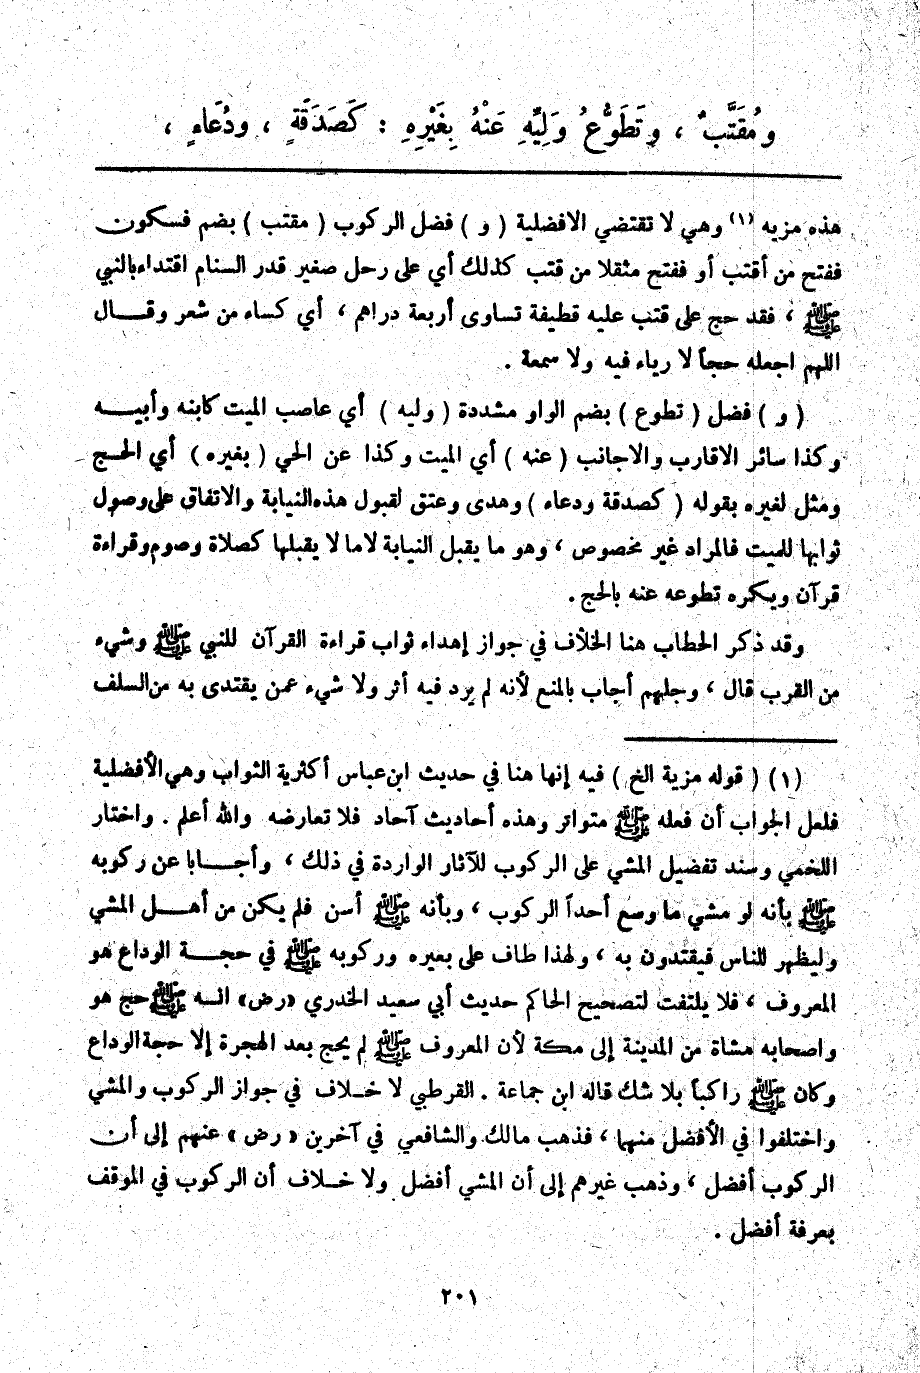 ومُقَتَّبٌ ، وتَطَوُّعُ وَلِيِّهِ عَنْهُ بِغَيْرِهِ : كَصَدَقَةٍ ، ودُعَاءٍ ،
هذه مزيه (١) وهي لا تقتضي الافضلية ( و ) فضل الركوب ( مقتب ) بضم فسكون
ففتح من أقتب أو ففتح مثقلا من قتب كذلك أي على رحل صغير قدر السنام اقتداء بالنبي
ﷺ ، فقد حج على قتب عليه قطيفة تساوى أربعة دراهم ، أي كساء من شعر وقــال
اللهم اجعله حجاً لا رياء فيه ولا سمعة .
( و ) فضل ( تطوع ) بضم الواو مشددة ( وليه ) أي عاصب الميت كابنه وأبيــه
وكذا سائر الاقارب والاجانب ( عنه ) أي الميت وكذا عن الحي ( بغيره ) أي الحـج
ومثل لغيره بقوله ( كصدقة ودعاء ) وهدى وعتق لقبول هذه النيابة والاتفاق على وصول
ثوابها للميت فالمراد غير مخصوص ، وهو ما يقبل النيابة لا ما لا يقبلها كصلاة وصوم وقراءة
قرآن ويكره تطوعه عنه بالحج .
وقد ذكر الحطاب هنا الخلاف في جواز إهداء ثواب قراءة القرآن للنبي ﷺ وشيء
من القرب قال ، وجلهم أجاب بالمنع لأنه لم يرد فيه أثر ولا شيء عمن يقتدى به من السلف
(١) ( قوله مزية الخ ) فيه إنها هنا في حديث ابن عباس أكثرية الثواب وهي الأفضلية
فلعل الجواب أن فعله ﷺ متواتر وهذه أحاديث آحاد فلا تعارضه والله أعلم . واختار
اللخمي وسند تفضيل المشي على الركوب للآثار الواردة في ذلك ، وأجــابا عن ركوبه
ﷺ بأنه لو مشي ما وسع أحداً الركوب ، وبأنه ﷺ أسن فلم يكن من أهــل المشي
وليظهر للناس فيقتدون به ، ولهذا طاف على بعيره وركوبه ﷺ في حجــة الوداع هو
المعروف ، فلا يلتفت لتصحيح الحاكم حديث أبي سعيد الخدري «رض» انــه ﷺ حج هو
واصحابه مشاة من المدينة إلى مكة لأن المعروف ﷺ لم يحج بعد الهجرة إلا حجة الوداع
وكان ﷺ راكباً بلا شك قاله ابن جماعة . القرطبي لا خـلاف في جواز الركوب والمشي
واختلفوا في الأفضل منهما ، فذهب مالك والشافعي في آخرين « رض » عنهم إلى أن
الركوب أفضل ، وذهب غيرهم إلى أن المشي أفضل ولا خــلاف أن الركوب في الموقف
بعرفة أفضل .
٢٠١